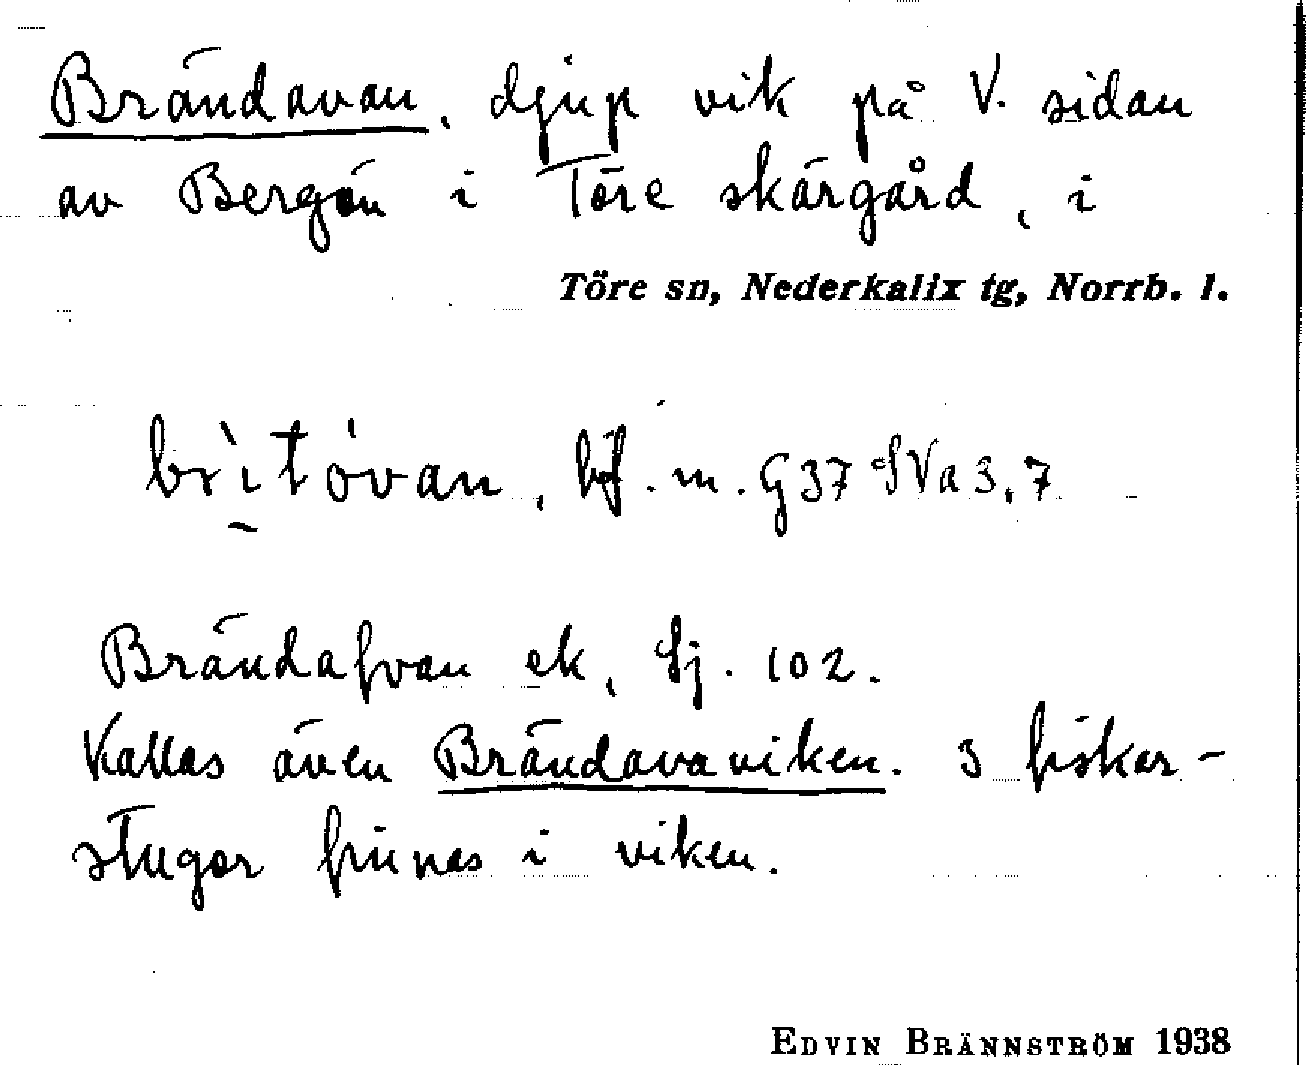 Brändavan, djup vik på V. sidan
av Bergön i Töre skärgård, i
Töre sn, Nederkalix tg, Norrb. l.
brìtóvan, bf. m. G37 SVa 3,7
Brändafvan ek, Sj. 102.
Kallas även Brändavaviken. 3 fiskar-
stugor finnes i viken.
EDVIN BRÄNNSTRÖM 1938